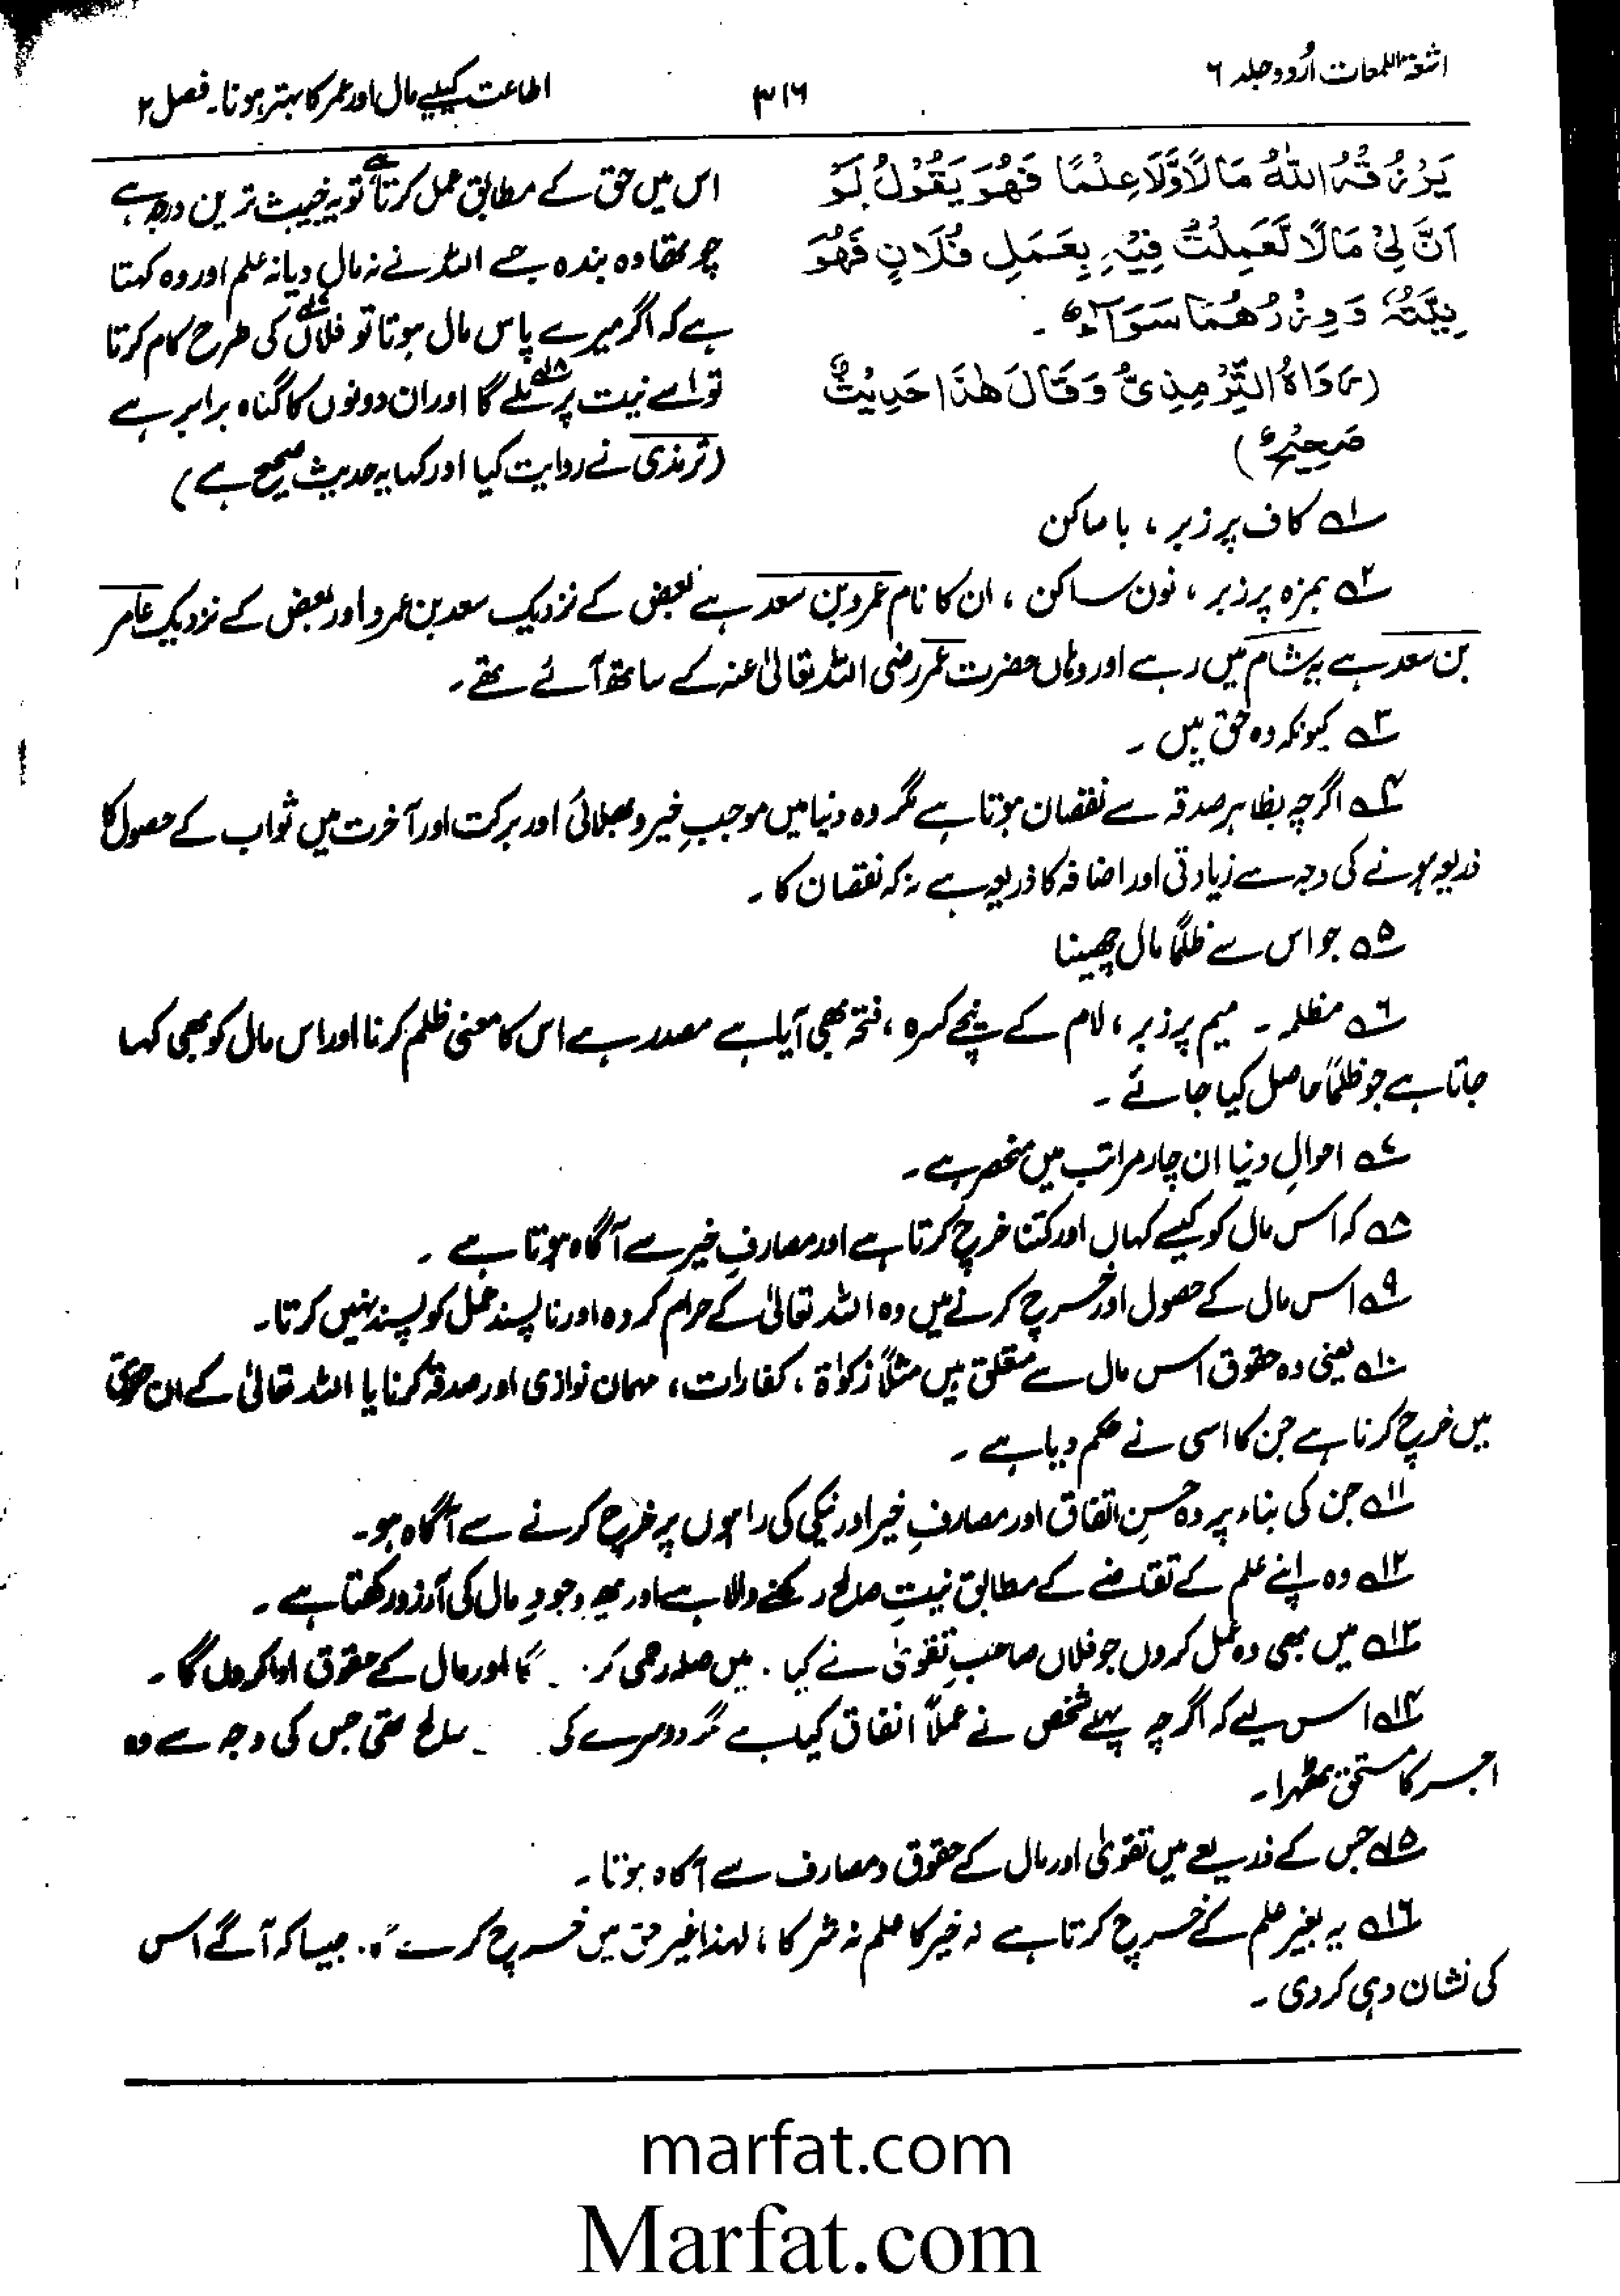 اشعۃ اللمعات اُردو جلد ۶
۳۱۶
اطاعت کیلیے مال اور عمر کا بہتر ہونا۔ فصل ۲
يَرْزُقْهُ اللّٰهُ مَالًا وَّلَا عِلْمًا فَهُوَ يَقُوْلُ لَوْ
اَنَّ لِيْ مَالًا لَعَمِلْتُ فِيْهِ بِعَمَلِ فُلَانٍ فَهُوَ
نِيَّتُهٗ وَوِزْرُهُمَا سَوَآءٌ۔
(رَوَاهُ التِّرْمِذِيُّ وَقَالَ هٰذَا حَدِيْثٌ
صَحِيْحٌ)
اس میں حق کے مطابق عمل کرتا ہے تو یہ خبیث ترین درجہ ہے
چوتھا وہ بندہ جسے اللہ نے نہ مال دیا نہ علم اور وہ کہتا
ہے کہ اگر میرے پاس مال ہوتا تو فلاں کی طرح کام کرتا
تو اسے نیت پر ملے گا اور ان دونوں کا گناہ برابر ہے
(ترمذی نے روایت کیا اور کہا یہ حدیث صحیح ہے)
۱؎ کاف پر زبر ، با ساکن
۲؎ ہمزہ پر زبر ، نون ساکن ، ان کا نام عمرو بن سعد ہے بعض کے نزدیک سعد بن عمرو اور بعض کے نزدیک عامر
بن سعد ہے یہ شام میں رہے اور وہاں حضرت عمر رضی اللہ تعالیٰ عنہ کے ساتھ آئے تھے۔
۳؎ کیونکہ وہ حق ہیں ۔
۴؎ اگرچہ بظاہر صدقہ سے نقصان ہوتا ہے مگر وہ دنیا میں موجبِ خیر و بھلائی اور برکت اور آخرت میں ثواب کے حصول کا
ذریعہ ہونے کی وجہ سے زیادتی اور اضافہ کا ذریعہ ہے نہ کہ نقصان کا ۔
۵؎ جو اس سے ظلماً مال چھینا
۶؎ مظلمہ ۔ میم پر زبر ، لام کے نیچے کسرہ ، فتحہ بھی آیا ہے مصدر ہے اس کا معنی ظلم کرنا اور اس مال کو بھی کہا
جاتا ہے جو ظلماً حاصل کیا جائے ۔
۷؎ احوالِ دنیا ان چار مراتب میں منحصر ہے۔
۸؎ کہ اس مال کو کیسے کہاں اور کتنا خرچ کرتا ہے اور مصارفِ خیر سے آگاہ ہوتا ہے ۔
۹؎ اس مال کے حصول اور خرچ کرنے میں وہ اللہ تعالیٰ کے حرام کردہ اور ناپسند عمل کو پسند نہیں کرتا۔
۱۰؎ یعنی وہ حقوق اس مال سے متعلق ہیں مثلاً زکوٰۃ ، کفارات ، مہمان نوازی اور صدقہ کرنا یا اللہ تعالیٰ کے ان حقوق
میں خرچ کرنا ہے جن کا اسی نے حکم دیا ہے ۔
۱۱؎ جن کی بناء پر وہ حسنِ اتفاق اور مصارفِ خیر اور نیکی کی راہوں پر خرچ کرنے سے آگاہ ہو۔
۱۲؎ وہ اپنے علم کے تقاضے کے مطابق نیتِ صالح رکھنے والا ہے اور وجودِ مال کی آرزو رکھتا ہے ۔
۱۳؎ میں بھی وہ عمل کروں جو فلاں صاحبِ تقویٰ نے کیا . میں صلہ رحمی کر گا اور مال کے حقوق ادا کروں گا ۔
۱۴؎ اس لیے کہ اگرچہ پہلے شخص نے عملاً انفاق کیا ہے مگر دوسرے کی صالح تھی جس کی وجہ سے وہ
اجر کا مستحق ٹھہرا ۔
۱۵؎ جس کے ذریعے میں تقویٰ اور مال کے حقوق و مصارف سے آگاہ ہوتا ۔
۱۶؎ یہ بغیر علم کے خرچ کرتا ہے نہ خیر کا علم نہ شر کا ، لہٰذا غیر حق میں خرچ کرے گا . جیسا کہ آگے اس
کی نشان دہی کر دی ۔
marfat.com
Marfat.com